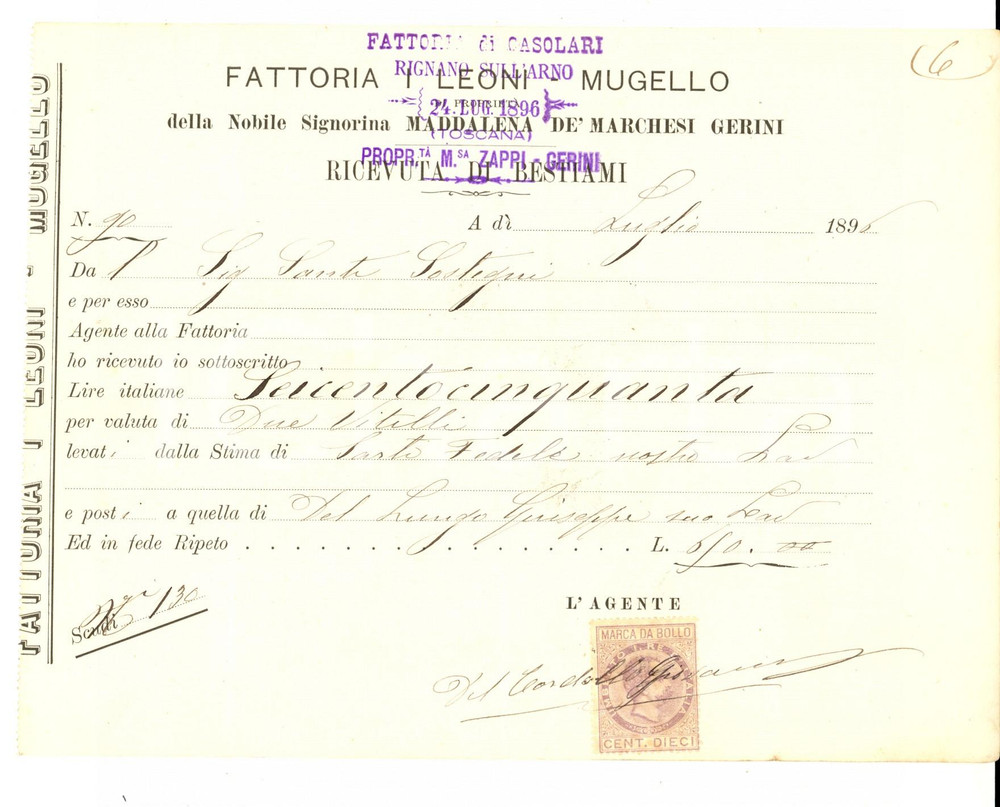 6
FATTORIA di CASOLARI
RIGNANO SULL'ARNO
24. LUG. 1896
(TOSCANA)
PROPR.TÀ M.SA ZAPPI-GERINI
FATTORIA I LEONI - MUGELLO
FATTORIA I LEONI - MUGELLO
DI PROPRIETÀ
della Nobile Signorina MADDALENA DE' MARCHESI GERINI
RICEVUTA DI BESTIAMI
N. 90 A dì Luglio 1896
Da l Sig Santi Sostegni
e per esso
Agente alla Fattoria
ho ricevuto io sottoscritto
Lire italiane Seicentocinquanta
per valuta di Due Vitelli
levati dalla Stima di Sarti Fedele nostro Lav
e posti a quella di Del Lungo Giuseppe suo Lav
Ed in fede Ripeto L. 650.00
Scudi 130
L'AGENTE
MARCA DA BOLLO
Del
CENT. DIECI